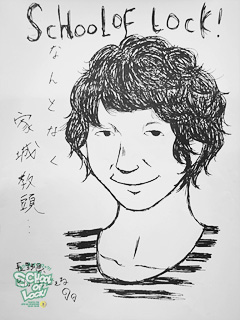 SCHOOL OF LOCK!
なんとなく
家城教頭…
SCHOOL
OF
LOCK!